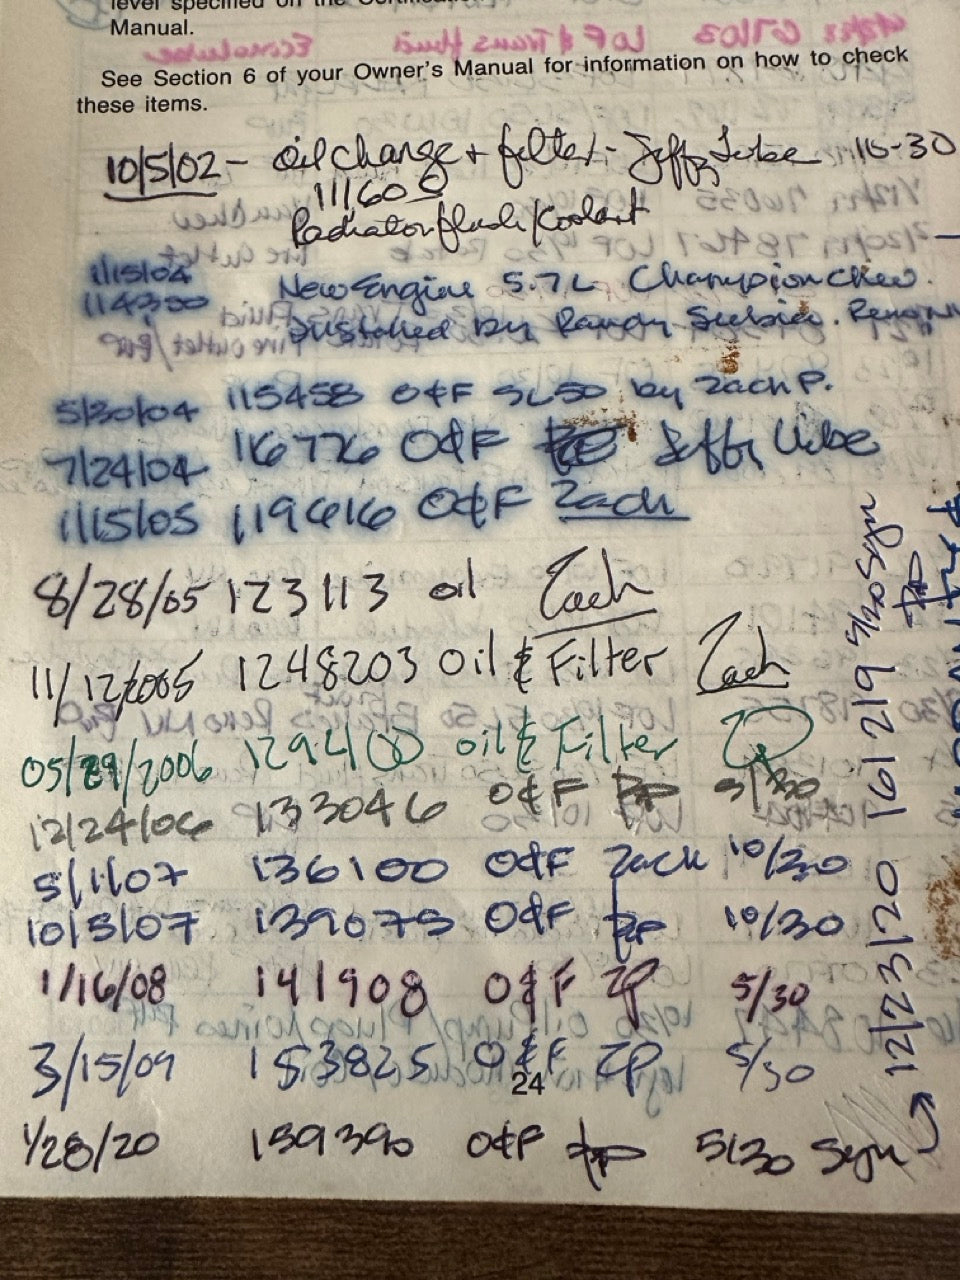 Manual.
See Section 6 of your Owner's Manual for information on how to check
these items.
10/5/02 - Oil change + filter - Jeffy Lube 10-30
111600
Radiator flush/Koolant
1/15/04 New Engine 5.7L Champion Chev.
114300 Installed by Randy
5/30/04 115458 O&F 5L50 by Zach P.
7/24/04 116776 O&F Jeffy Lube
1/15/05 119616 O&F Zach
8/28/05 123113 oil Zach
11/12/2005 1248203 Oil & Filter Zach
05/29/2006 129400 oil & Filter ZP
12/24/06 133046 O&F 5/30
5/1/07 136100 O&F Zack 10/30
10/5/07 139075 O&F 10/30
1/16/08 141908 O&F ZP 5/30
3/15/09 153825 O&F ZP 5/30
24
1/28/20 159390 O&F 5/30 Syn
12/23/20 161219 5/20 Syn